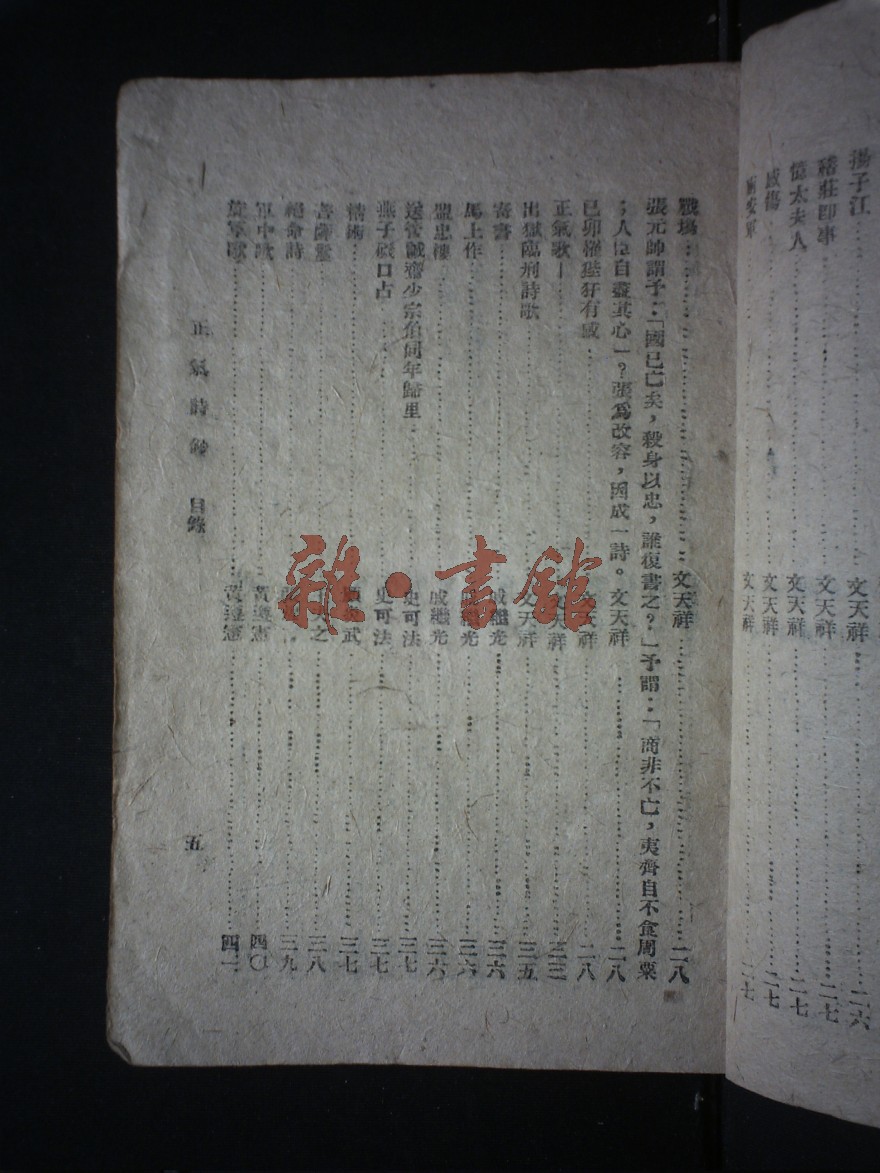 揚子江……文天祥……二六
即事……文天祥……二七
憶太夫人……文天祥……二七
感傷……文天祥……二七
南安軍……文天祥……二七
戰場……文天祥……二八
張元帥謂予:「國已亡矣,殺身以忠,誰復書之?」予謂:「商非不亡,夷齊自不食周粟
;人臣自盡其心」?張爲改容,因成一詩。文天祥……二八
己卯 有感……文天祥……二八
正氣歌……文天祥……三三
出獄臨刑詩歌……文天祥……三五
寄書……戚繼光……三六
馬上作……三六
盟忠樓……戚繼光……三六
送管誠齋少宗伯同年歸里……史可法……三七
燕子磯口占……史可法……三七
精衛……武……三七
之……三八
絕命詩……三九
軍中歌……黃遵憲……四〇
旋軍歌……黃遵憲……四一
正氣詩鈔 目錄
五
雜·書館